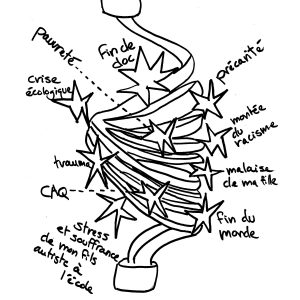 pauvreté
fin de
doc
précarité
crise
écologique
montée
du
racisme
trauma
malaise
de ma fille
CAQ
fin du
monde
et stress
et souffrance
de mon fils
autiste à
l'école